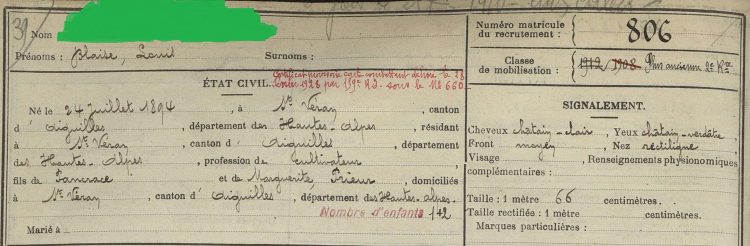 Nom
Prénoms : Blaise, Louis Surnoms :
ÉTAT CIVIL.
Certificat provisoire carte combattant délivré le 28
1928 par 159e R.I. sous le No 660
Né le 24 Juillet 1894, à St Véran, canton
d'Aiguilles, département des Hautes-Alpes, résidant
à St Véran, canton d'Aiguilles, département
des Hautes-Alpes, profession de cultivateur,
fils de Pancrace et de Marguerite Prieur, domiciliés
à St Véran, canton d'Aiguilles, département des Hautes-Alpes.
Nombre d'enfants
Marié à
Numéro matricule
du recrutement : 806
Classe
de mobilisation : 1912 / 1908 Plus ancienne 2e Rve
SIGNALEMENT.
Cheveux châtain-clair, Yeux châtain-verdâtre
Front moyen, Nez rectiligne
Visage , Renseignements physionomiques
complémentaires :
Taille : 1 mètre 66 centimètres.
Taille rectifiée : 1 mètre centimètres.
Marques particulières :